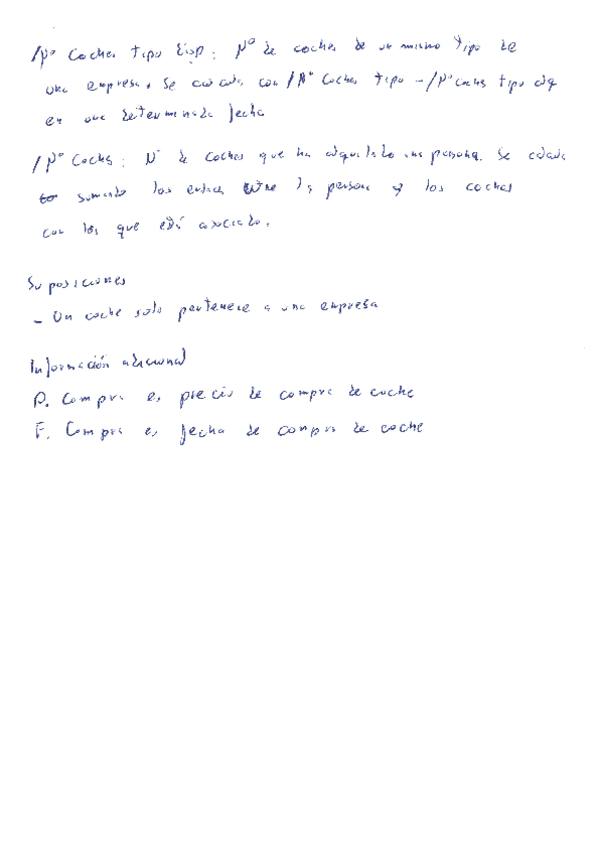 /Nº Coches tipo Disp: Nº de coches de un mismo tipo de
una empresa. Se calcula con /Nº Coches tipo - /Nº coches tipo alq
en una determinada fecha
/Nº Coches: Nº de coches que ha alquilado una persona. Se calcula
sumando los enlaces entre la persona y los coches
con los que está asociado.
Suposiciones
- Un coche solo pertenece a una empresa
Información adicional
P. Compra es precio de compra de coche
F. Compra es fecha de compra de coche